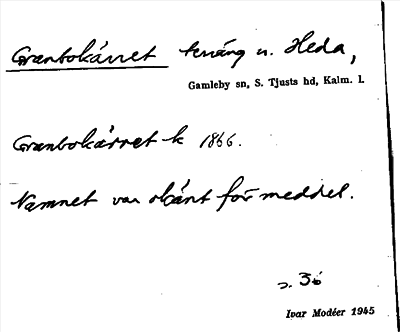 Grænbokärret teräng u. Heda,
Gamleby sn, S. Tjusts hd, Kalm. l.
Grænbokärret k 1866.
Namnet var okänt för meddel.
s. 36
Ivar Modéer 1945